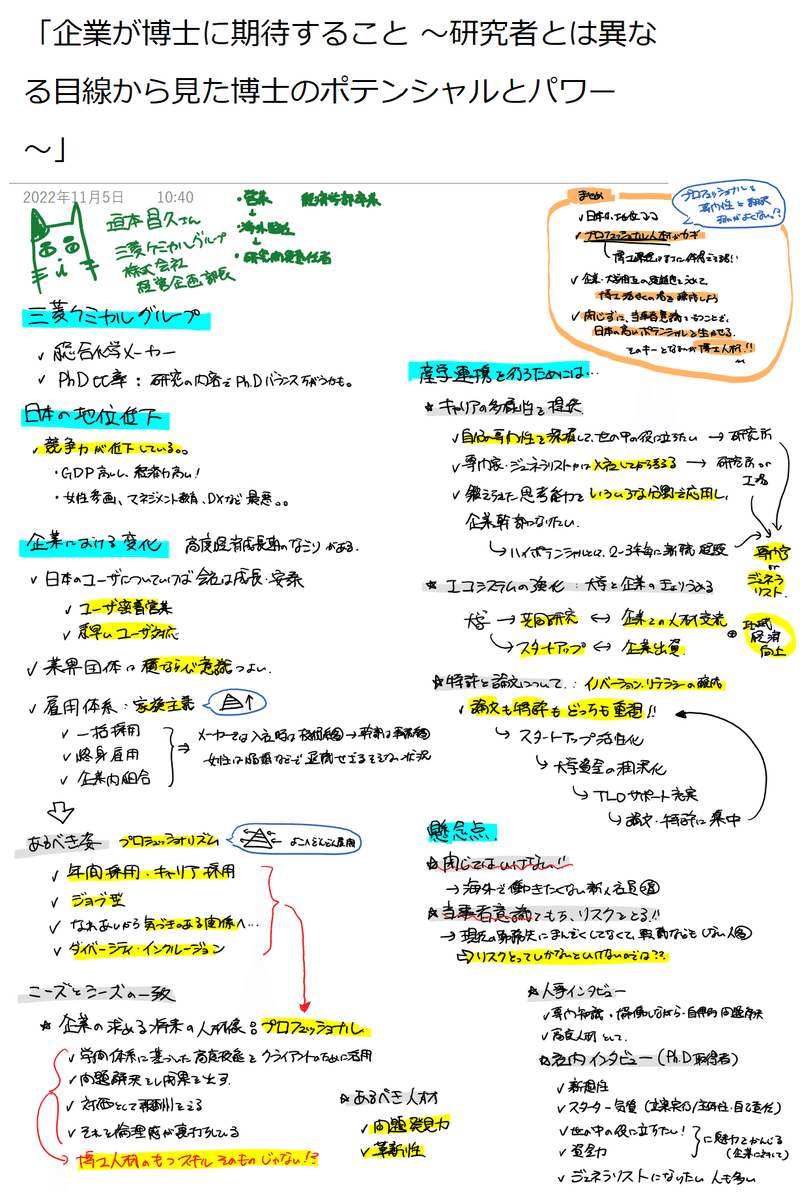 「企業が博士に期待すること ～研究者とは異な
る目線から見た博士のポテンシャルとパワー
～」
2022年11月5日 10:40
亘本昌久さん
三菱ケミカルグループ
株式会社
経営企画部長
・営業 経済学部卒業
・海外駐在
・研究開発責任者
まとめ
✓ プロフェッショナル人材がカギ
✓ 企業・大学相互の
✓ 閉じずに、当事者意識をもつことで、
日本の高いポテンシャルを生かせる
そのキーとなるのが博士人材!!
プロフェッショナルを
専門性と翻訳
三菱ケミカルグループ
✓ 総合化学メーカー
✓ PhD比率：研究の内容でPh.Dバランスがちがうかも。
日本の地位低下
✓ 競争力が低下している。。
・GDP高いし、経済力高い!
・女性参画、マネジメント教育、DXなど最悪。。
企業における変化 高度経済成長期のなごりがある.
✓ 日本のユーザについていけば会社は成長・安泰
✓ ユーザ密着営業
✓ 素早いユーザ対応
✓ 業界団体は横ならび意識つよい.
✓ 雇用体系：家族主義
✓ 一括採用
✓ 終身雇用
✓ 企業内組合
⇒ メーカーでは入社時は
女性は
あるべき姿 プロフェッショナリズム
✓ 年間採用・キャリア採用
✓ ジョブ型
✓ なれあいから気づきのある関係へ…
✓ ダイバーシティ・インクルージョン
ニーズとシーズの一致
☆ 企業の求める将来の人材像：プロフェッショナル
✓ 学問体系に基づいた高度技能をクライアントのために活用
✓ 問題解決をし成果を出す.
✓ 対価として報酬をえる
✓ それを倫理感が裏打ちしている
→ 博士人材のもつスキルそのものじゃない!?
☆ あるべき人材
✓ 問題発見力
✓ 革新性
産学連携を図るためには…
☆ キャリアの多様性を提供
✓ 自らの専門性を深掘して、世の中の役に立ちたい → 研究所
✓ 専門家・ジェネラリストかは入社してから考える → 研究所 or
工場
✓ 鍛えられた思考能力をいろいろな分野で応用し、
企業幹部になりたい.
→ ハイポテンシャルとは、2-3年毎に新職
専門家
or
ジェネラリスト.
☆ エコシステムの強化：大学と企業の
大学 → 共同研究 ⇔ 企業との人材交流
→ スタートアップ ⇔ 企業出資
地域
経済
向上
☆ 特許と論文について：イノベーション・リテラシーの醸成
✓ 論文も特許もどっちも重視!!
→ スタートアップ活性化
→ 大学資金の潤沢化
→ TLOサポート充実
→ 論文・特許に集中
懸念点
☆ 閉じてはいけない!!
→ 海外で働きたくない新入社員
☆ 当事者意識をもち、リスクとろう!!
→ 現在の
⇒ リスクとってしかないといけないのでは??
☆ 人事インタビュー
✓ 専門知識・
✓ 高度人材として.
☆ 社内インタビュー (Ph.D取得者)
✓ 新規性
✓ スターター気質 (立案実行/主体性・自己責任)
✓ 世の中の役に立ちたい!
✓ 資金力
に魅力をかんじる
(企業に対して)
✓ ジェネラリストになりたい人も多い